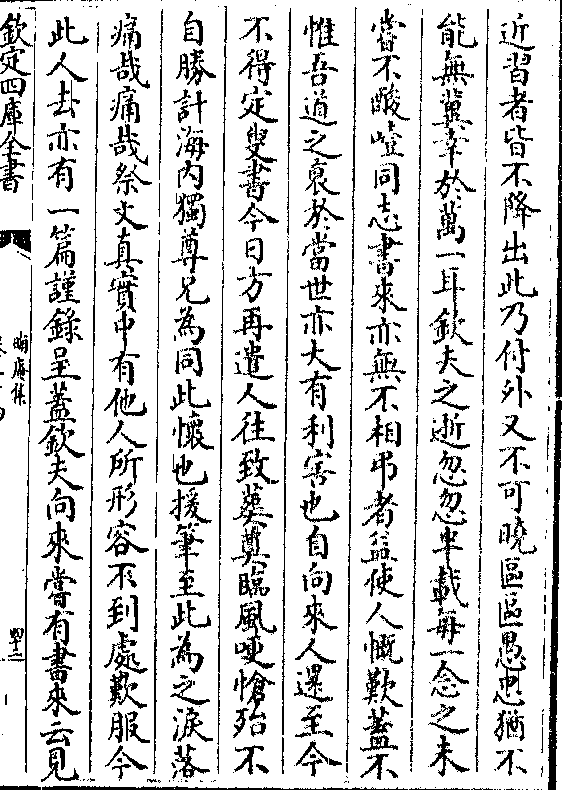 近習者皆不降出此乃付外又不可曉區區愚忠猶不
能無冀幸於萬一耳欽夫之逝忽忽半載每一念之未
嘗不酸噎同志書來亦無不相弔者益使人慨歎蓋不
惟吾道之衰於當世亦大有利害也自向來人還至今
不得定叟書今日方再遣人往致葬奠臨風哽愴殆不
自勝計海内獨尊兄為同此懷也援筆至此為之淚落
痛哉痛哉祭文真實中有他人所形容不到處歎服今
此人去亦有一篇謹錄呈蓋欽夫向來嘗有書來云見
欽定四庫全書
晦庵集